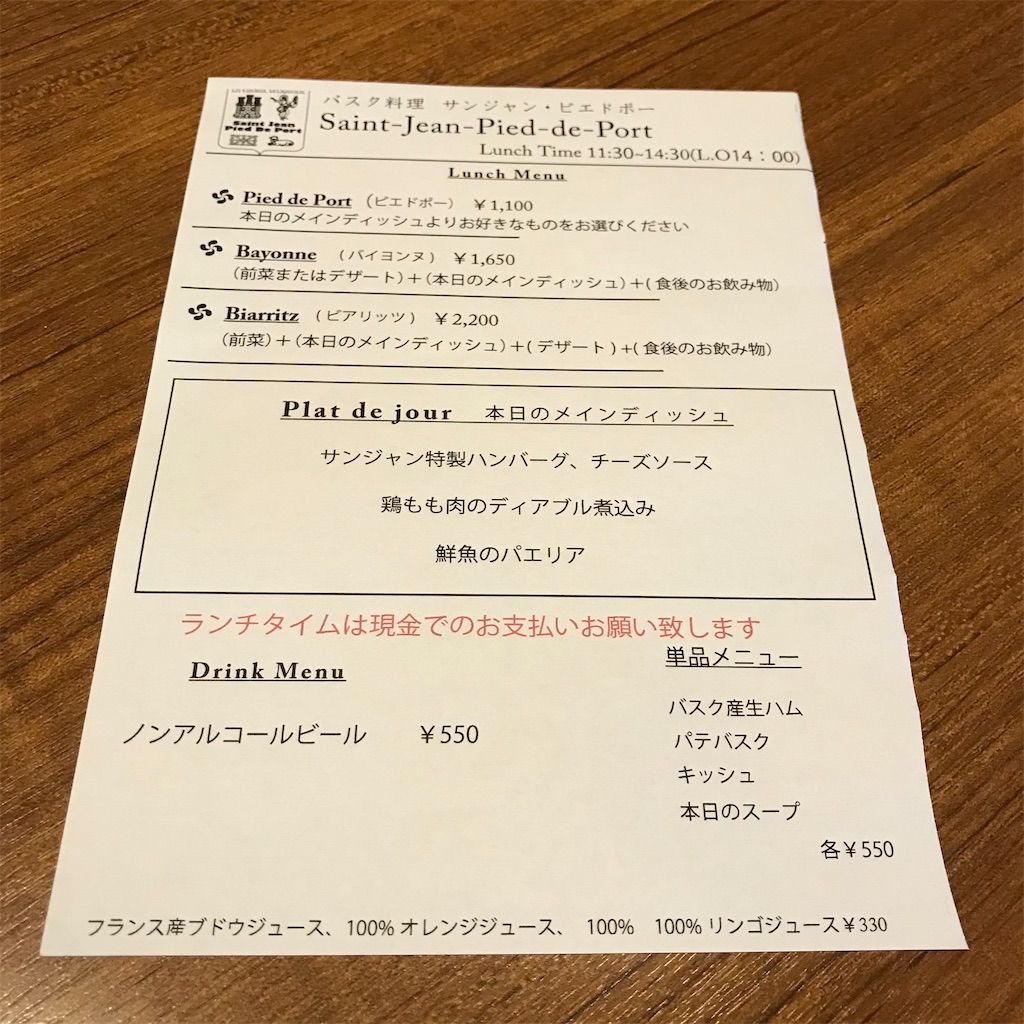 Saint Jean
Pied De Port
バスク料理 サンジャン・ピエドポー
Saint-Jean-Pied-de-Port
Lunch Time 11:30~14:30(L.O14：00)
Lunch Menu
Pied de Port （ピエドポー） ￥1,100
本日のメインディッシュよりお好きなものをお選びください
Bayonne （バイヨンヌ） ￥1,650
（前菜またはデザート）＋（本日のメインディッシュ）＋( 食後のお飲み物）
Biarritz （ビアリッツ） ￥2,200
（前菜）＋（本日のメインディッシュ）＋( デザート ) +( 食後のお飲み物）
Plat de jour 本日のメインディッシュ
サンジャン特製ハンバーグ、チーズソース
鶏もも肉のディアブル煮込み
鮮魚のパエリア
ランチタイムは現金でのお支払いお願い致します
Drink Menu
ノンアルコールビール ￥550
単品メニュー
バスク産生ハム
パテバスク
キッシュ
本日のスープ
各￥550
フランス産ブドウジュース、100% オレンジジュース、 100% 100% リンゴジュース￥330